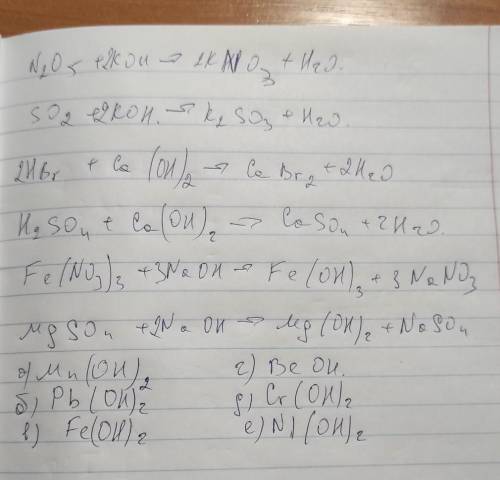 N₂O₅ + 2KOH → 2KNO₃ + H₂O.
SO₂ + 2KOH. → K₂SO₃ + H₂O.
2HBr + Ca(OH)₂ → CaBr₂ + 2H₂O
H₂SO₄ + Ca(OH)₂ → CaSO₄ + 2H₂O.
Fe(NO₃)₃ + 3NaOH → Fe(OH)₃ + 3NaNO₃
MgSO₄ + 2NaOH → Mg(OH)₂ + NaSO₄
а) Mn(OH)₂ г) BeOH.
б) Pb(OH)₂ д) Cr(OH)₂
в) Fe(OH)₂ е) Ni(OH)₂